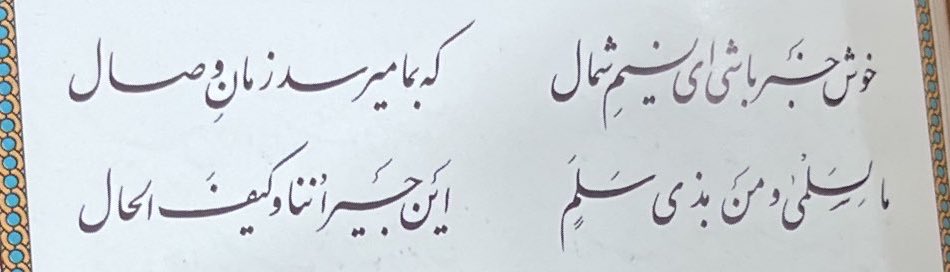 خوش خَبَر باشی ای نسیمِ شمال که بما میرسد زمانِ وصال
ما لِسَلْمیٰ و مَنْ بذی سَلَمٍ اَیْنَ جیرَانُنَا وکَیْفَ الحال